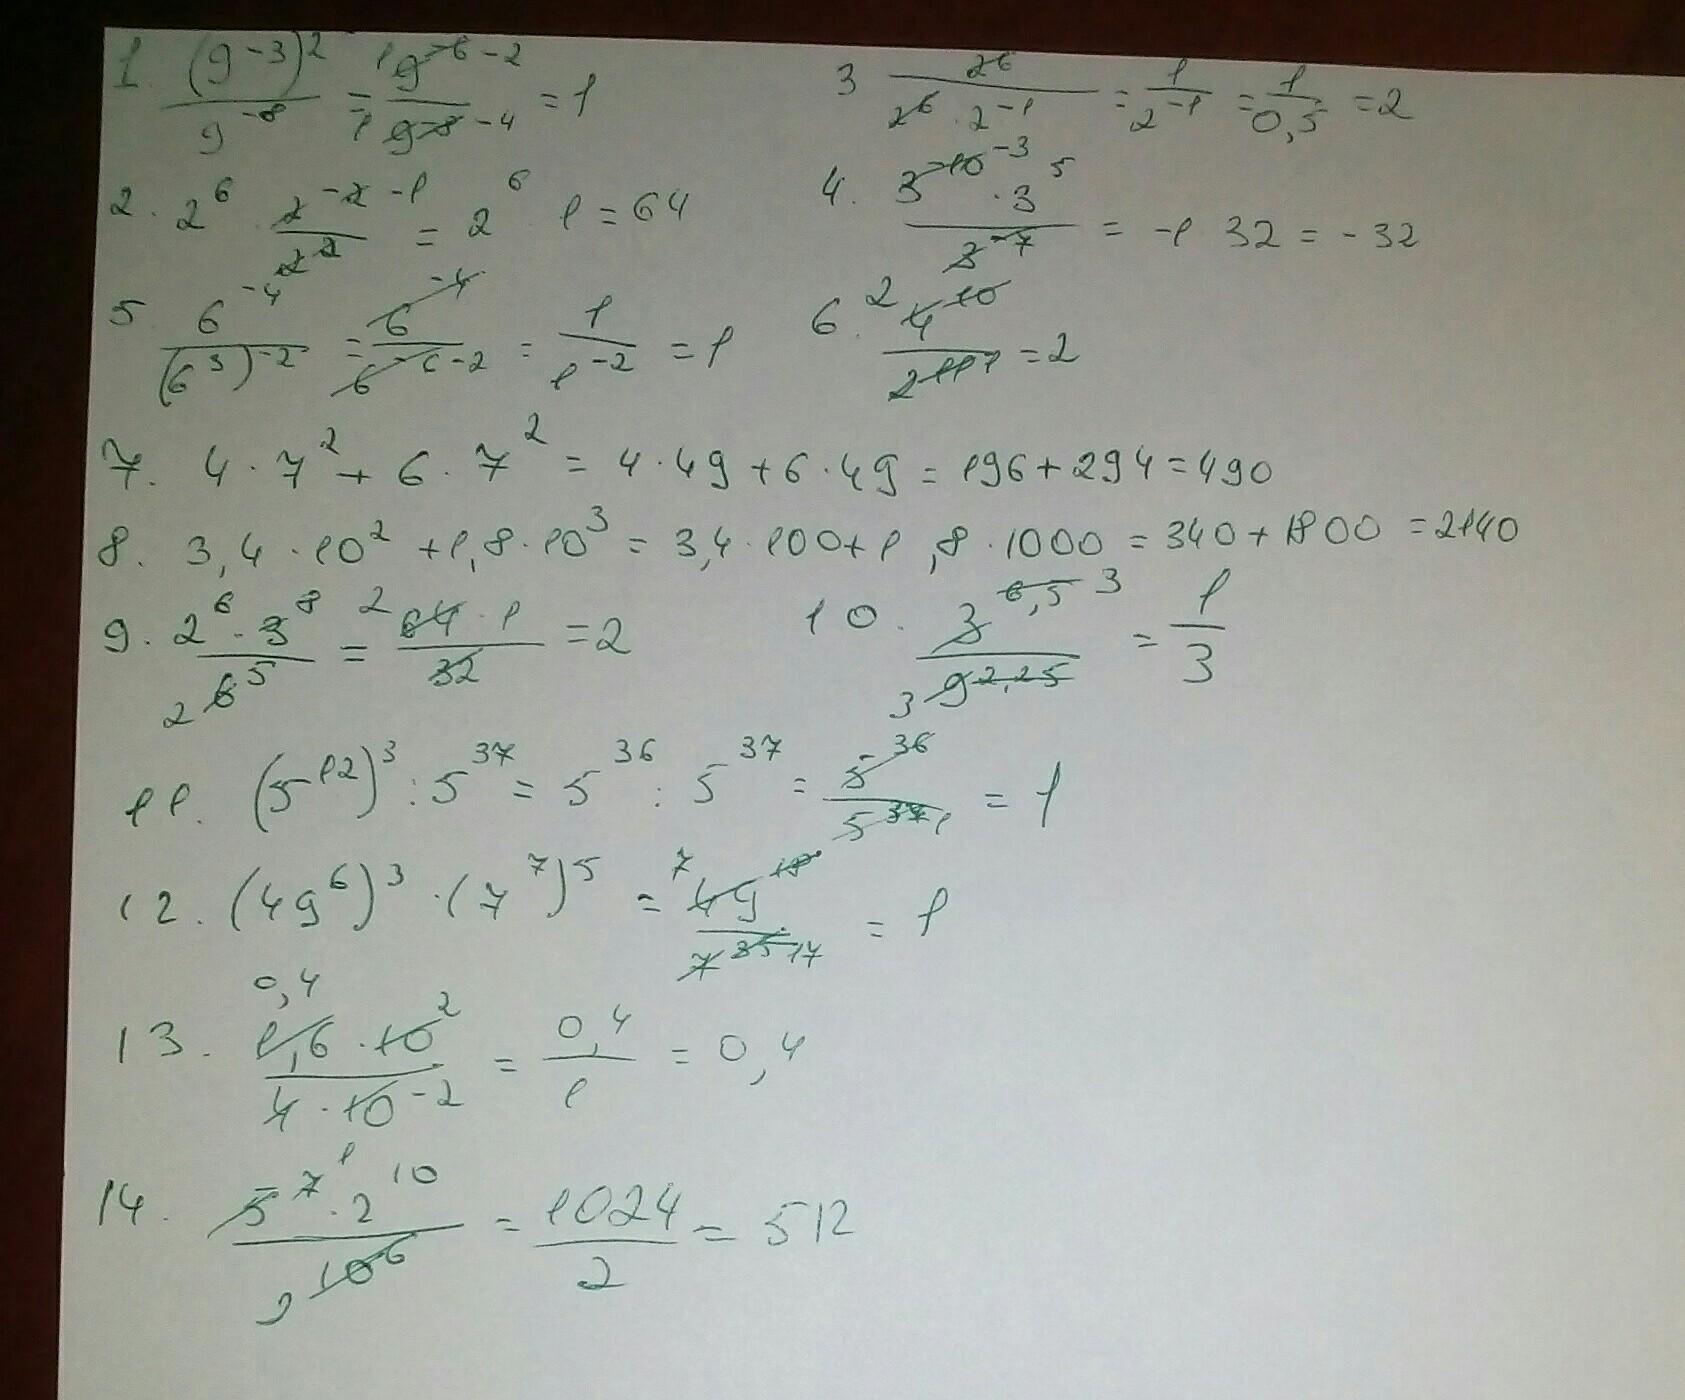 1. (9^-3)^2 / 9^-8 = 1 9^-6 -2 / 1 9^-8 -4 = 1
3 2^6 / 2^6 · 2^-1 = 1 / 2^-1 = 1 / 0,5 = 2
2. 2^6 · 2^-2 -1 / 2^2 = 2^6 · 1 = 64
4. 3^-10 -3 · 3^5 / 3^-7 = -1 32 = -32
5. 6^-4 / (6^3)^-2 = 6^-4 / 6^-6 -2 = 1 / 1^-2 = 1
6. 2 4^10 / 2^11 1 = 2
7. 4 · 7^2 + 6 · 7^2 = 4 · 49 + 6 · 49 = 196 + 294 = 490
8. 3,4 · 10^2 + 1,8 · 10^3 = 3,4 · 100 + 1,8 · 1000 = 340 + 1800 = 2140
9. 2^6 · 3^8 / 2 6^5 = 2 64 · 1 / 32 = 2
10. 3^6,5 3 / 3 9^2,25 = 1 / 3
11. (5^12)^3 : 5^37 = 5^36 : 5^37 = 5^36 / 5^37 1 = 1
12. (49^6)^3 · (7^7)^5 = 7 49^18 / 7^35 17 = 1
0,4
13. 1,6 · 10^2 / 4 · 10^-2 = 0,4 / 1 = 0,4
14. 5^7 1 · 2^10 / 2 10^6 = 1024 / 2 = 512